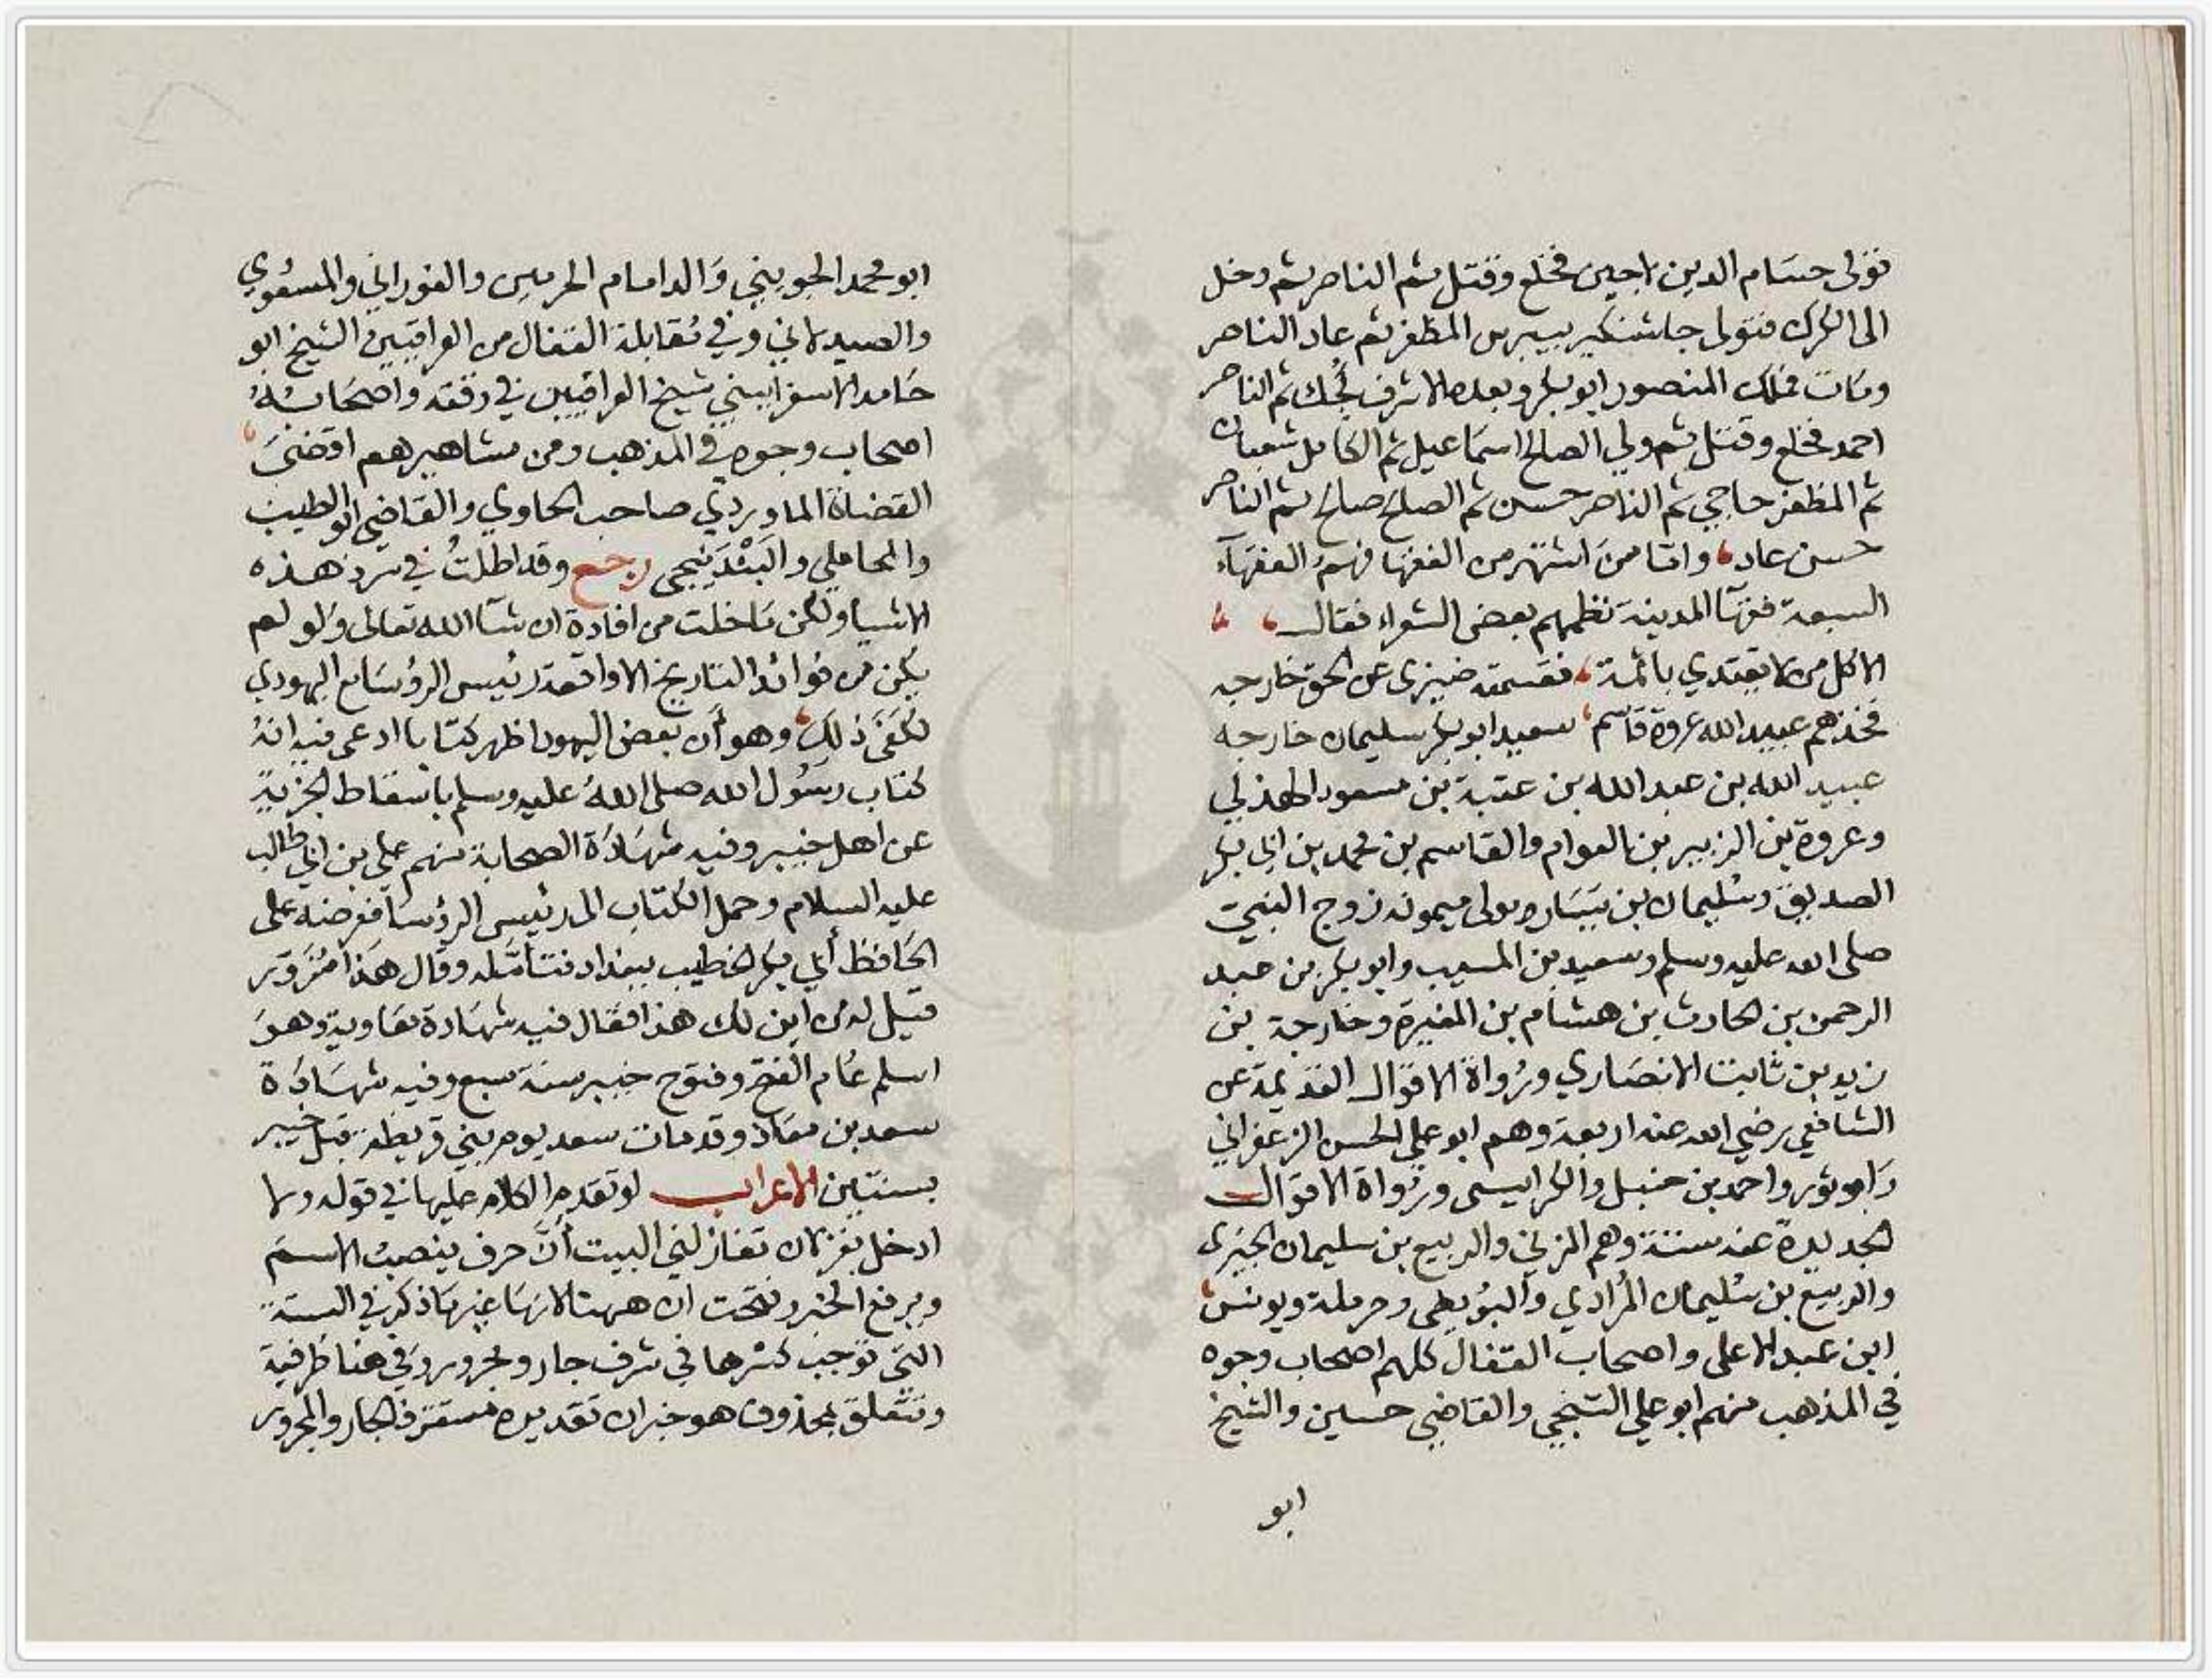 فتولى حسام الدين لاجين فخلع وقتل ثم الناصر ثم دخل
الى الكرك فتولى جاشنكير بيبرس المظفر ثم عاد الناصر
ومات فملك المنصور ابو بكر وبعده الاشرف كجك ثم الناصر
احمد فخلع وقتل ثم ولي الصالح اسماعيل ثم الكامل شعبان
ثم المظفر حاجي ثم الناصر حسن ثم الصلح صالح ثم الناصر
حسن عاد، واما من اشتهر من الفقها فهم الفقهآء
السبعة فقهآ المدينة نظمهم بعض الشعراء فقال
الا كل من لا يقتدي بائمة، فقسمته ضيزى عن الحق خارجه
فخذهم عبيد الله عروة قاسم، سعيد ابو بكر سليمان خارجه
عبيد الله بن عبد الله بن عتبة بن مسعود الهذلي
وعروة بن الزبير بن العوام والقاسم بن محمد بن ابي بكر
الصديق وسليمان بن يسار مولى ميمونه زوج النبي
صلى الله عليه وسلم وسعيد بن المسيب وابو بكر بن عبد
الرحمن بن الحارث بن هشام بن المغيرة وخارجة بن
زيد بن ثابت الانصاري ورُواة الاقوال القديمة عن
الشافعي رضي الله عنه اربعة وهم ابو علي الحسن الزعفراني
وابو ثور واحمد بن حنبل والكرابيسى ورُواة الاقوال
الجديدة عنه ستة وهم المزني والربيع بن سليمان الجيزى
والربيع بن سُليمان المُرادي والبُويطى وحرملة ويونس
ابن عبد الاعلى واصحاب القفال كلهم اصحاب وجوه
في المذهب منهم ابو علي السّنجي والقاضي حسين والشيخ
ابو
ابو محمد الجويني وَالد امام الحرمين والفوراني والمسعُودي
والصيدلاني وفي مُقابلة القفال من العراقيين الشيخ ابو
حَامد الاسفراييني شيخ العراقيين في وقته واصحَابُهُ
اصحاب وجوه في المذهب ومن مشاهيرهم اقضىَ
القضاة الماوردي صاحب الحاوي والقاضي ابو الطيب
والمحاملي والبَنْدَنيجى رجع وقد اطلتُ في سرد هذه
الاشيا ولكن مَا خلت من افادة ان شآ الله تعالى وَلو لم
يكن من فوائد التاريخ الا واقعة رئيس الرؤسَا مع اليهودي
لكَفَى ذلك، وهو أن بعض اليهود اظهر كتابا ادعى فيه انهُ
كتاب رسُول الله صلى اللهُ عليه وسلم باسقاط الجزية
عن اهل خيبر وفيه شهَادَة الصحابة منهم علي بن ابي طالب
عليه السلام وحمل الكتاب الى رئيس الرؤسَا فعرضه على
الحَافظ أبي بكر الخطيب ببغداد فتأمَّله وقال هَذا مُزَوّر
قيل له من اين لك هذا فقال فيه شهَادة معَاوية وهوَ
اسلم عَام الفتح وفتوح خيبر سنة سبع وفيه شهَادَة
سعد بن معَاذ وقد مات سعد يوم بني قريظة قبل خيبر
بسنتين الاعراب لو تقدم الكلام عليها في قوله ولا
ادخل بغزلان تغازلني البيت أنَّ حرف ينصبُ الاسمَ
ويرفع الخبر وفتحت ان ههنا لانهَا غير مَا ذكر في الستة
التي تُوجب كسْرها في شرف جار ومجرور وَفي هنا ظرفية
وتتعلق بمحذوف هو خبر ان تقديره مستقر في الجار والمجرور